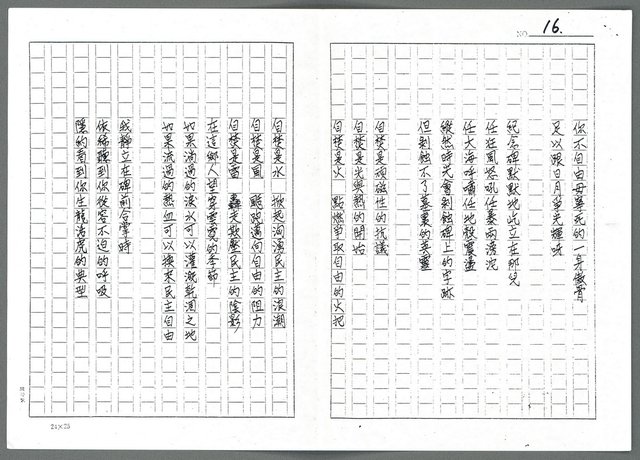 NO. 16.
你不自由毋寧死的一身傲骨
足以跟日月爭光輝呀
紀念碑默默地屹立在那兒
任狂風怒吼任暴雨滂沱
任大海呼嘯任地殼震盪
縱然時光會剝蝕碑上的字跡
但剝蝕不了墓裏的英靈
自焚是頑強性的抗議
自焚是光與熱的開始
自焚是火 點燃爭取自由的火把
自焚是水 掀起洶湧民主的浪潮
自焚是風 颳跑邁向自由的阻力
自焚是雷 轟走欺壓民主的陰影
在這鄉人望穿雲霓的季節
如果淌過的淚水可以灌溉乾涸之地
如果流過的熱血可以換來民主自由
我靜立在碑前合掌時
依稀聽到你從容不迫的呼吸
隱約看到你生龍活虎的典型
24×25